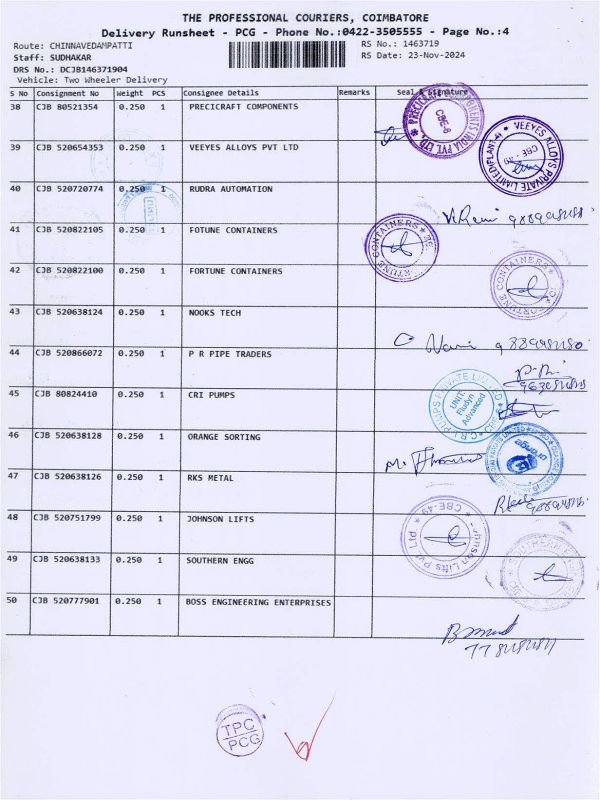 THE PROFESSIONAL COURIERS, COIMBATORE
Delivery Runsheet - PCG - Phone No.:0422-3505555 - Page No.:4
Route: CHINNAVEDAMPATTI RS No.: 1463719
Staff: SUDHAKAR RS Date: 23-Nov-2024
DRS No.: DCJB146371904
Vehicle: Two Wheeler Delivery
S No Consignment No Weight PCS Consignee Details Remarks Seal & Signature
38 CJB 80521354 0.250 1 PRECICRAFT COMPONENTS
PRECICRAFT COMPONENTS INDIA PVT. LTD. CBE-6
39 CJB 520654353 0.250 1 VEEYES ALLOYS PVT LTD
VEEYES ALLOYS PRIVATE LIMITED CBE-49
40 CJB 520720774 0.250 1 RUDRA AUTOMATION
41 CJB 520822105 0.250 1 FOTUNE CONTAINERS
FORTUNE CONTAINERS
42 CJB 520822100 0.250 1 FORTUNE CONTAINERS
FORTUNE CONTAINERS
43 CJB 520638124 0.250 1 NOOKS TECH
44 CJB 520866072 0.250 1 P R PIPE TRADERS
45 CJB 80824410 0.250 1 CRI PUMPS
C.R.I. PUMPS PRIVATE LIMITED
UNIT: Fludyn Advanced
46 CJB 520638128 0.250 1 ORANGE SORTING
orange
47 CJB 520638126 0.250 1 RKS METAL
48 CJB 520751799 0.250 1 JOHNSON LIFTS
Johnson Lifts Pvt Ltd CBE-49
49 CJB 520638133 0.250 1 SOUTHERN ENGG
SOUTHERN
50 CJB 520777901 0.250 1 BOSS ENGINEERING ENTERPRISES
TPC
PCG